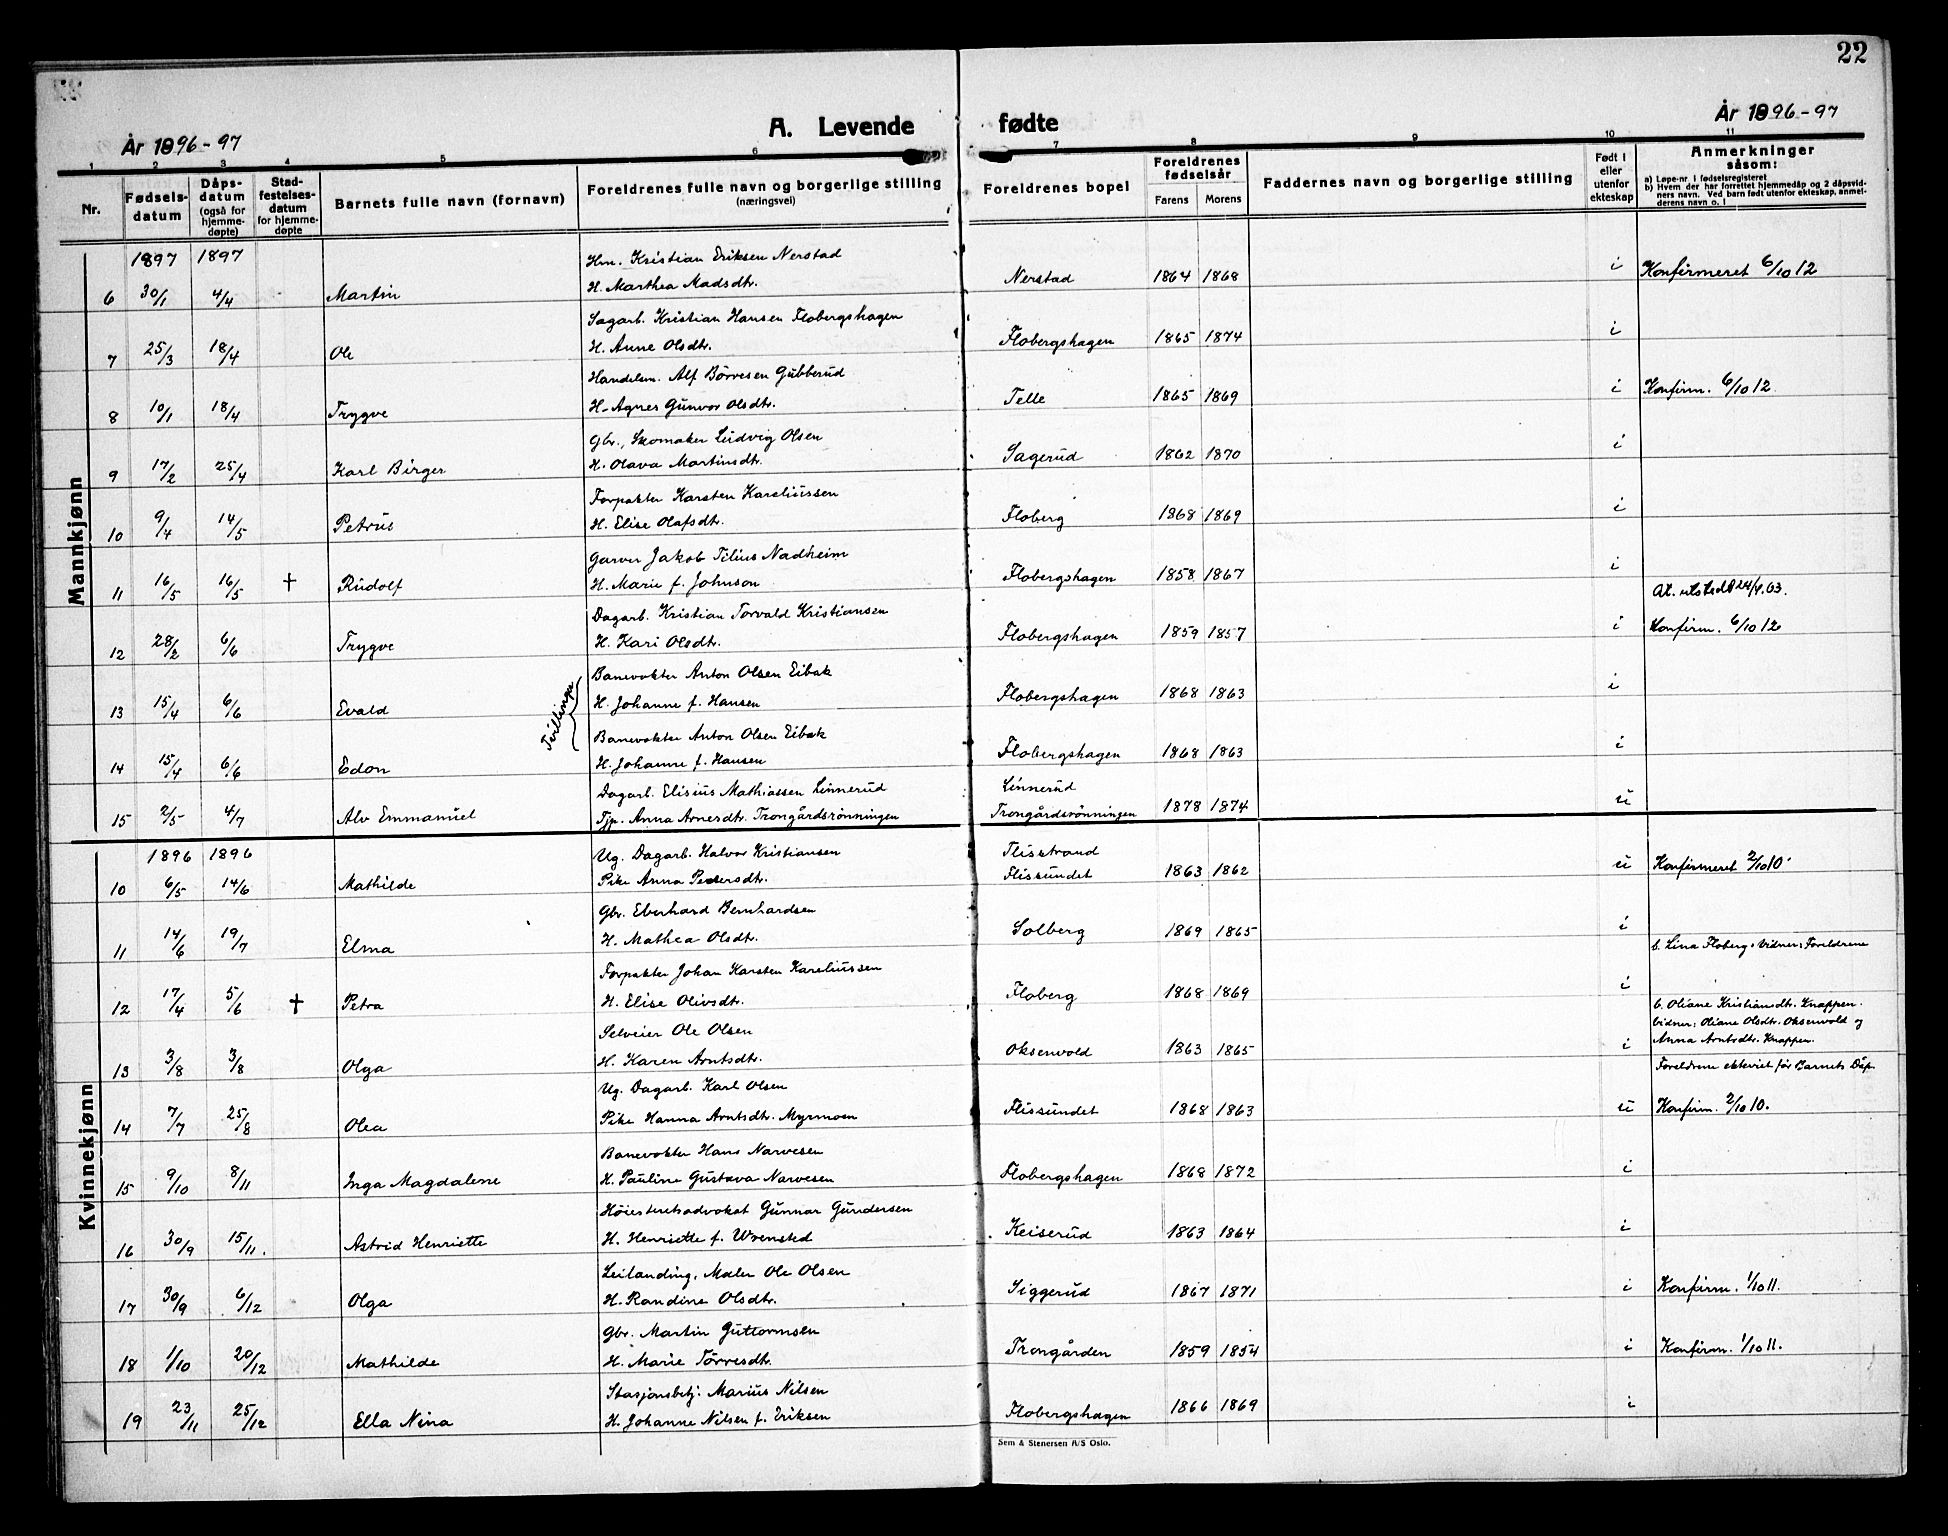 22
År 1896-97 A. Levende fødte År 1896-97
1 2 3 4 5 6 7 8 9 10 11
Nr. Fødselsdatum Dåpsdatum (også for hjemmedøpte) Stadfestelsesdatum for hjemmedøpte Barnets fulle navn (fornavn) Foreldrenes fulle navn og borgerlige stilling (næringsvei) Foreldrenes bopel Foreldrenes fødselsår Farens Morens Faddernes navn og borgerlige stilling Født i eller utenfor ekteskap Anmerkninger såsom:
a) Løpe-nr. i fødselsregisteret
b) Hvem der har forrettet hjemmedåp og 2 dåpsvidners navn. Ved barn født utenfor ekteskap, anmelderens navn o. l
Mannkjønn
1897 1897 Hm. Kristian Eriksen Nerstad
6 30/1 4/4 Martin H. Marthea Madsdtr. Nerstad 1864 1868 i Konfirmeret 6/10 12
Sagarb. Kristian Hansen Flobergshagen
7 25/3 18/4 Ole H. Anne Olsdtr. Flobergshagen 1865 1874 i
Handelsm. Alf Börresen Gubberud
8 10/1 18/4 Trygve H. Agnes Gunvor Olsdtr. Telle 1865 1869 i Konfirm. 6/10 12
Gbr., Skomaker Ludvig Olsen
9 17/2 25/4 Karl Birger H. Olava Martinsdtr. Sagerud 1862 1870 i
Forpakter Karsten Kareliussen
10 9/4 14/5 Petrus H. Elise Olafsdtr. Floberg 1868 1869 i
Garver Jakob Tilius Nadheim
11 16/5 16/5 † Rudolf H. Marie f. Johnson Flobergshagen 1858 1867 i
At. utstedt 24/9.63.
Dagarb. Kristian Torvald Kristiansen
12 28/2 6/6 Trygve H. Kari Olsdtr. Flobergshagen 1859 1857 i Konfirm. 6/10 12
Tvillinger
Banevokter Anton Olsen Eibak
13 15/4 6/6 Evald H. Johanne f. Hansen Flobergshagen 1868 1863 i
Banevokter Anton Olsen Eibak
14 15/4 6/6 Edon H. Johanne f. Hansen Flobergshagen 1868 1863 i
Dagarb. Elisius Mathiassen Linnerud Linnerud
15 2/5 4/7 Alv Emmanuel Tjp. Anna Arnesdtr. Trongårdsrönningen Trongårdsrönningen 1878 1874 u
Kvinnekjønn
1896 1896 Ug. Dagarb. Halvor Kristiansen Flisstrand
10 6/5 14/6 Mathilde Pike Anna Pedersdtr. Flissundet 1863 1862 u Konfirmeret 2/10 10
Gbr. Eberhard Bernhardsen
11 14/6 19/7 Elma H. Mathea Olsdtr. Solberg 1869 1865 i
b. Lina Floberg. Vidner: Foreldrene
Forpakter Johan Karsten Kareliussen
12 17/4 5/6 † Petra H. Elise Olivsdtr. Floberg 1868 1869 i
b. Oliane Kristiansdtr. Knappen.
Vidner: Oliane Olsdtr. Oksenvold og
Selveier Ole Olsen Anna Arntsdtr. Knappen.
13 3/8 3/8 Olga H. Karen Arntsdtr. Oksenvold 1863 1865 i
Foreldrene ekteviet før Barnets Dåp
Ug. Dagarb. Karl Olsen
14 7/7 25/8 Olea Pike Hanna Arntsdtr. Myrmoen Flissundet 1868 1863 u Konfirm. 2/10 10.
Banevokter Hans Narvesen
15 9/10 8/11 Inga Magdalene H. Pauline Gustava Narvesen Flobergshagen 1868 1872 i
Höiesteretsadvokat Gunnar Gundersen
16 30/9 15/11 Astrid Henriette H. Henriette f. Wrensted Keiserud 1863 1864 i
Leilanding, Maler Ole Olsen
17 30/9 6/12 Olga H. Randine Olsdtr. Siggerud 1867 1871 i Konfirm. 1/10 11.
Gbr. Martin Guttormsen
18 1/10 20/12 Mathilde H. Marie Törresdtr. Trongården 1859 1854 i Konfirm. 1/10 11.
Stasjonsbetj. Marius Nilsen
19 23/11 25/12 Ella Nina H. Johanne Nilsen f. Eriksen Flobergshagen 1866 1869 i
Sem & Stenersen A/S Oslo.